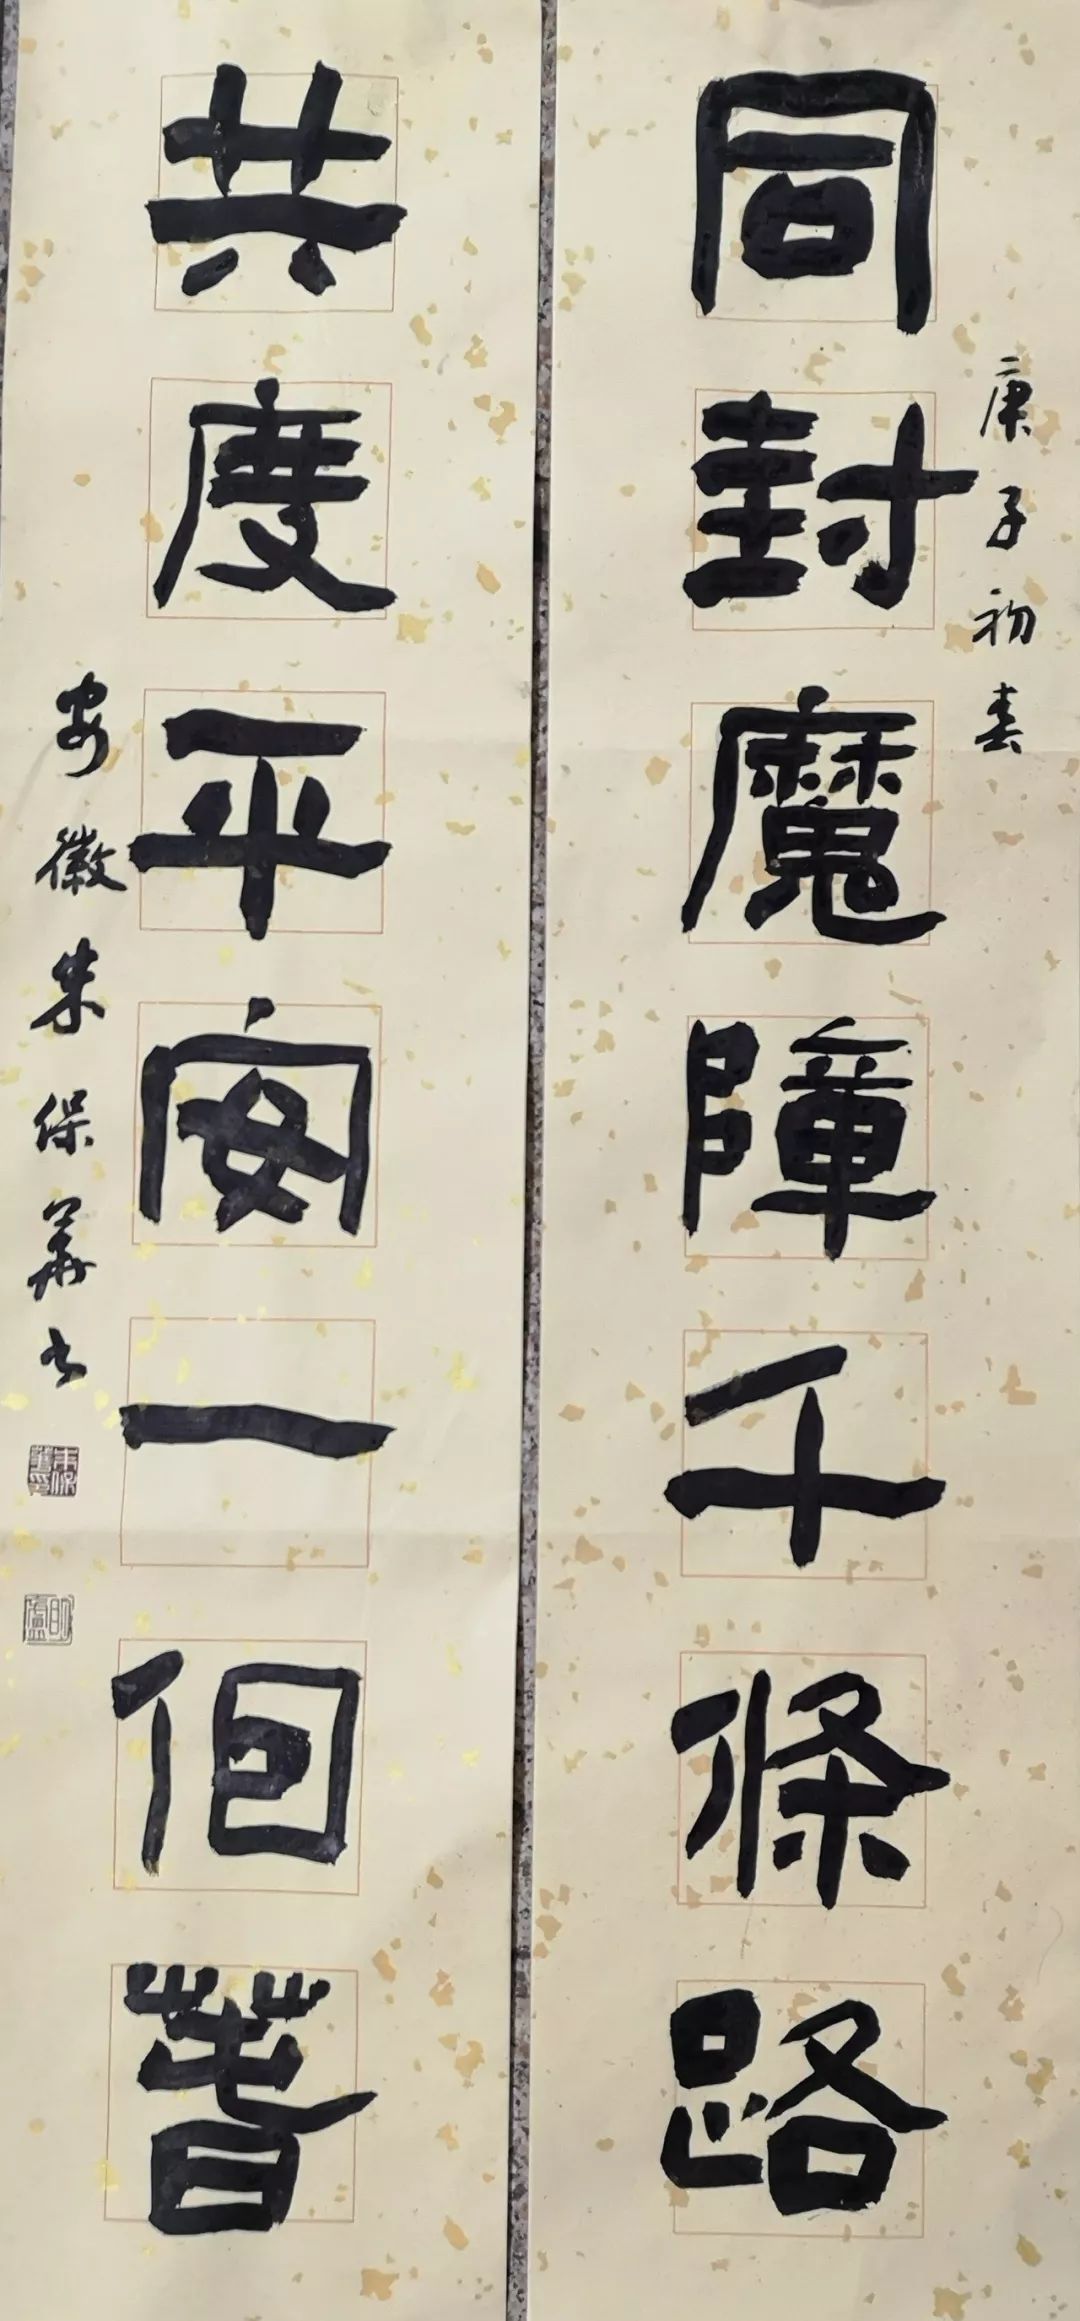 庚子初春
同封魔障千條路
共度平安一個萅
安徽朱保華书